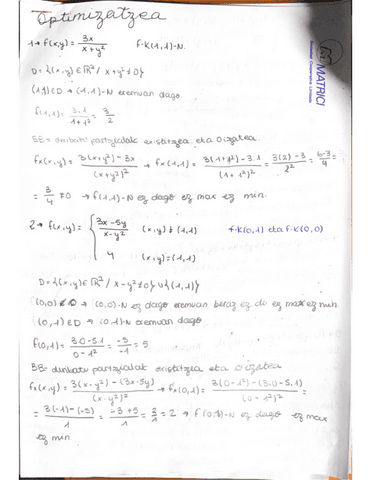 Optimizatzea
1→ f(x,y) = 3x / x+y² f-k (1,1)-N.
MATRICI
D = {(x,y) ∈ ℝ² / x+y² ≠ 0}
(1,1) ∈ D → (1,1)-N eremuan dago
f(1,1) = 3·1 / 1+1² = 3/2
BB = deribatu partzialak existitzea eta 0 izatea.
fx(x,y) = 3(x+y²) - 3x / (x+y²)² → fx(1,1) = 3(1+1²) - 3·1 / (1+1²)² = 3(2) - 3 / 2² = 6-3 / 4 =
= 3/4 ≠ 0 → f (1,1)-N ez dago ez max ez min.
2→ f(x,y) = { 3x-5y / x-y² (x,y) ≠ (1,1) f-k (0,1) eta f-k (0,0)
4 (x,y) = (1,1)
D = {(x,y) ∈ ℝ² / x-y² ≠ 0} ∪ {(1,1)}
(0,0) ∉ D → (0,0)-N ez dago eremuan beraz ez da ez max ez min.
(0,1) ∈ D → (0,1)-N eremuan dago
f(0,1) = 3·0-5·1 / 0-1² = -5 / -1 = 5
BB: deribatu partzialak existitzea eta 0 izatea
fx(x,y) = 3(x-y²) - (3x-5y) / (x-y²)² → fx(0,1) = 3(0-1²) - (3·0-5·1) / (0-1²)² =
= 3(-1) - (-5) / 1 = -3+5 / 1 = 2/1 = 2 → f (0,1)-N ez dago ez max
ez min.